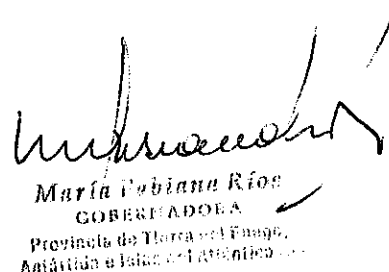 María Fabiana Ríos
GOBERNADORA
Provincia de Tierra del Fuego,
Antártida e Islas del Atlántico